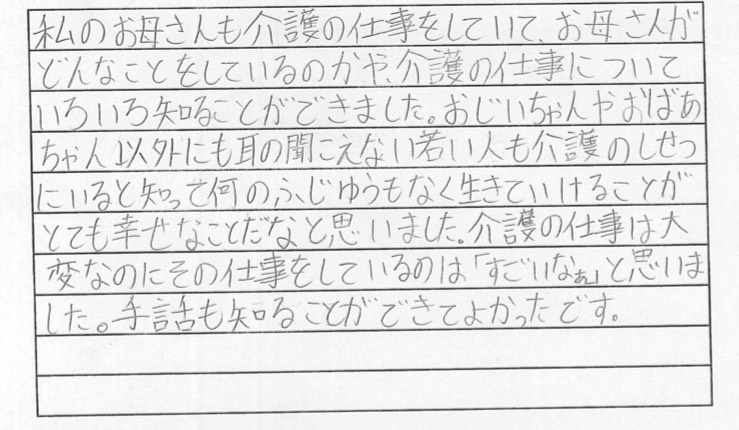 私のお母さんも介護の仕事をしていて、お母さんが
どんなことをしているのかや、介護の仕事について
いろいろ知ることができました。おじいちゃんやおばあ
ちゃん以外にも耳の聞こえない若い人も介護のしせつ
にいると知って何のふじゆうもなく生きていけることが
とても幸せなことだなと思いました。介護の仕事は大
変なのにその仕事をしているのは「すごいなぁ」と思いま
した。手話も知ることができてよかったです。